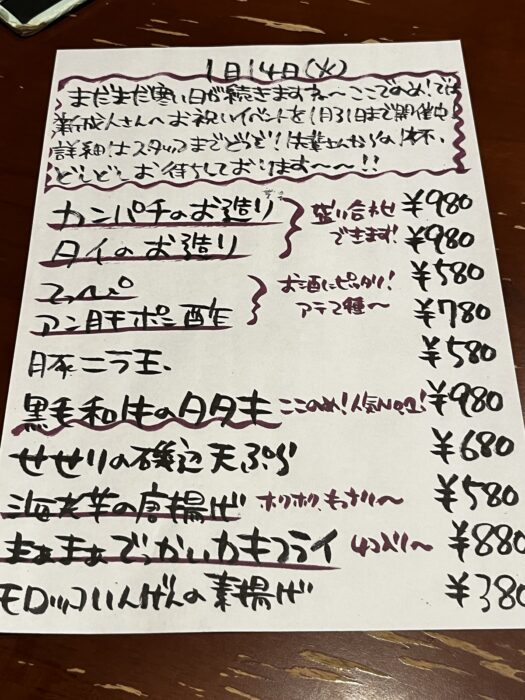 1日14日(火)
まだまだ寒い日が続きますね〜ここでのめ!では
新成人さんへお祝いイベントを1月31日まで開催中!
詳細はスタッフまでどうぞ!先輩さんからの1杯、
どしどしお待ちしております〜〜!!
カンパチのお造り 盛り合わせ ¥980
タイのお造り できます! ¥980
てっぺい お酒にピッタリ! ¥580
アン肝ポン酢 アテ2種〜 ¥780
豚ニラ玉、 ¥580
黒毛和牛のタタキ ここのめ!人気No1! ¥980
せせりの磯辺天ぷら ¥680
海老芋の唐揚げ ホクホク、もっちり〜 ¥580
まぁまぁでっかいカキフライ 4コ入り〜 ¥880
モロッコいんげんの素揚げ ¥380